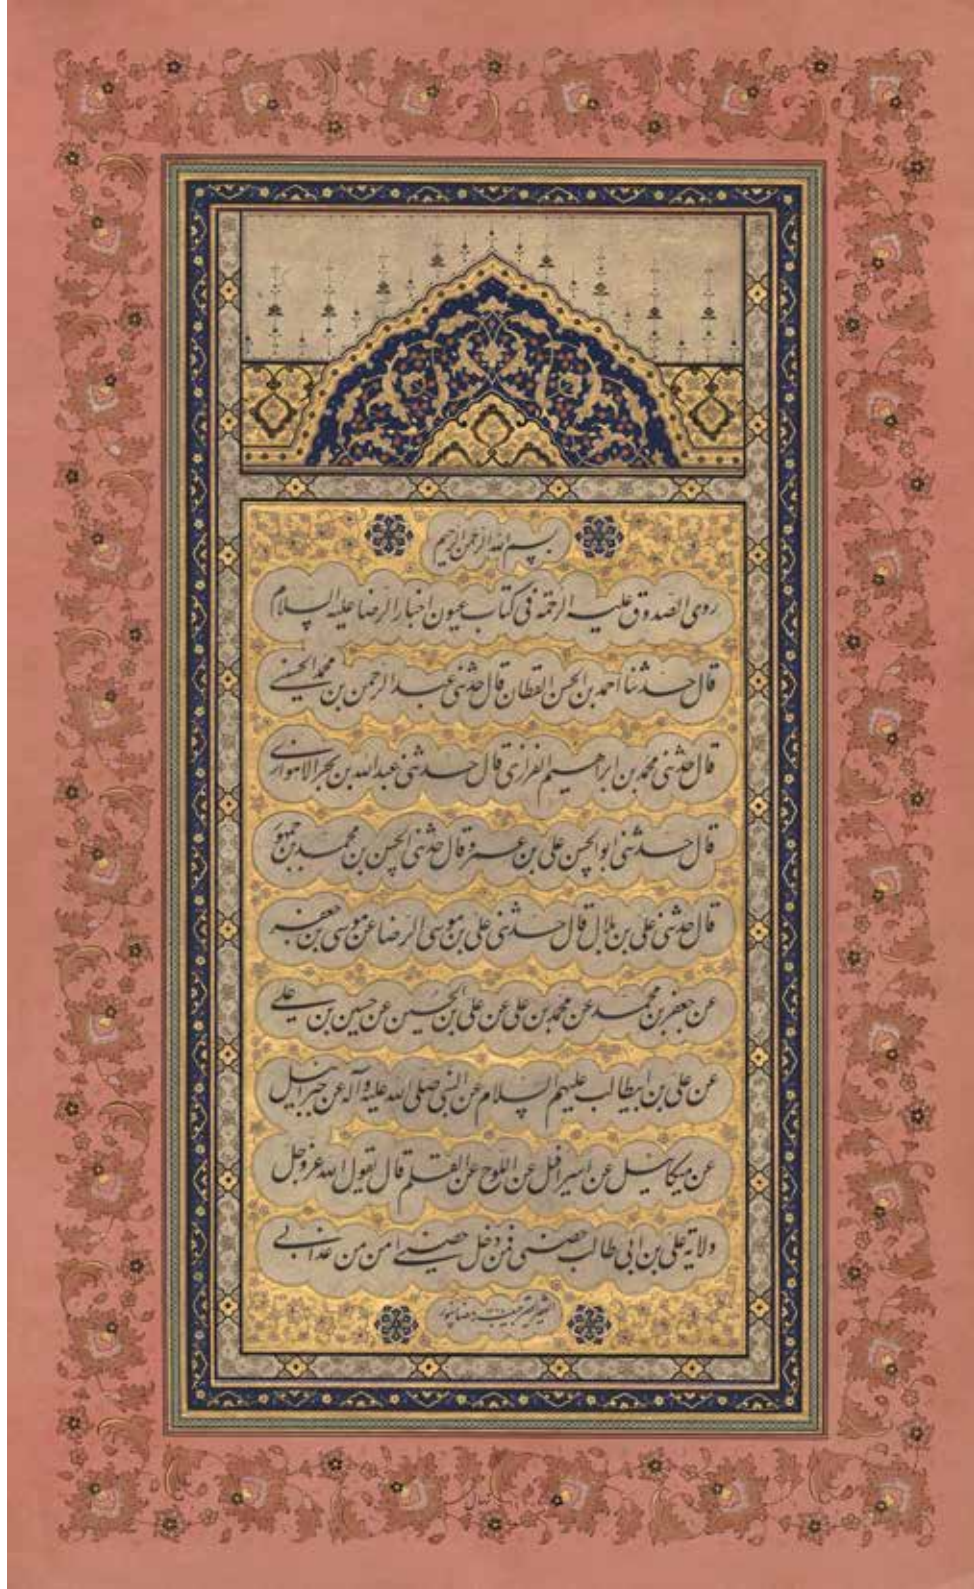 بسم الله الرحمن الرحیم
روی الصدوق علیه الرحمة فی کتاب عیون اخبار الرضا علیه السلام
قال حدثنا احمد بن الحسن القطان قال حدثنی عبد الرحمن بن محمد الحسینی
قال حدثنی محمد بن ابراهیم الفزازی قال حدثنی عبدالله بن بحر الاهوازی
قال حدثنی ابوالحسن علی بن عمرو قال حدثنی الحسن بن محمد بن جمهور
قال حدثنی علی بن بلال قال حدثنی علی بن موسی الرضا عن موسی بن جعفر
عن جعفر بن محمد عن محمد بن علی عن علی بن الحسین عن حسین بن علی
عن علی بن ابیطالب علیهم السلام عن النبی صلی الله علیه و آله عن جبرئیل
عن میکائیل عن اسرافیل عن اللوح عن القلم قال یقول الله عز و جل
ولایة علی بن ابی طالب حصنی فمن دخل حصنی امن من عذابی